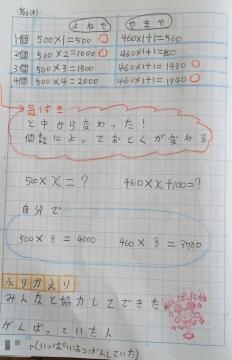 よねや やまや
1個 500×1=500 460×1+1=560
2個 500×2=1000
3個 500×3=1500 460×1+1=1480
4個 500×4=2000 460×1+1=1940
気付き
と中から変わった！
個数によっておとくが変わる
500×x=? 460×x+100=?
自分で
500×8=4000 460×8=3780
ふりかえり
みんなと協力してできた
がんばっていた人
(いっぱいはつげんしていた)